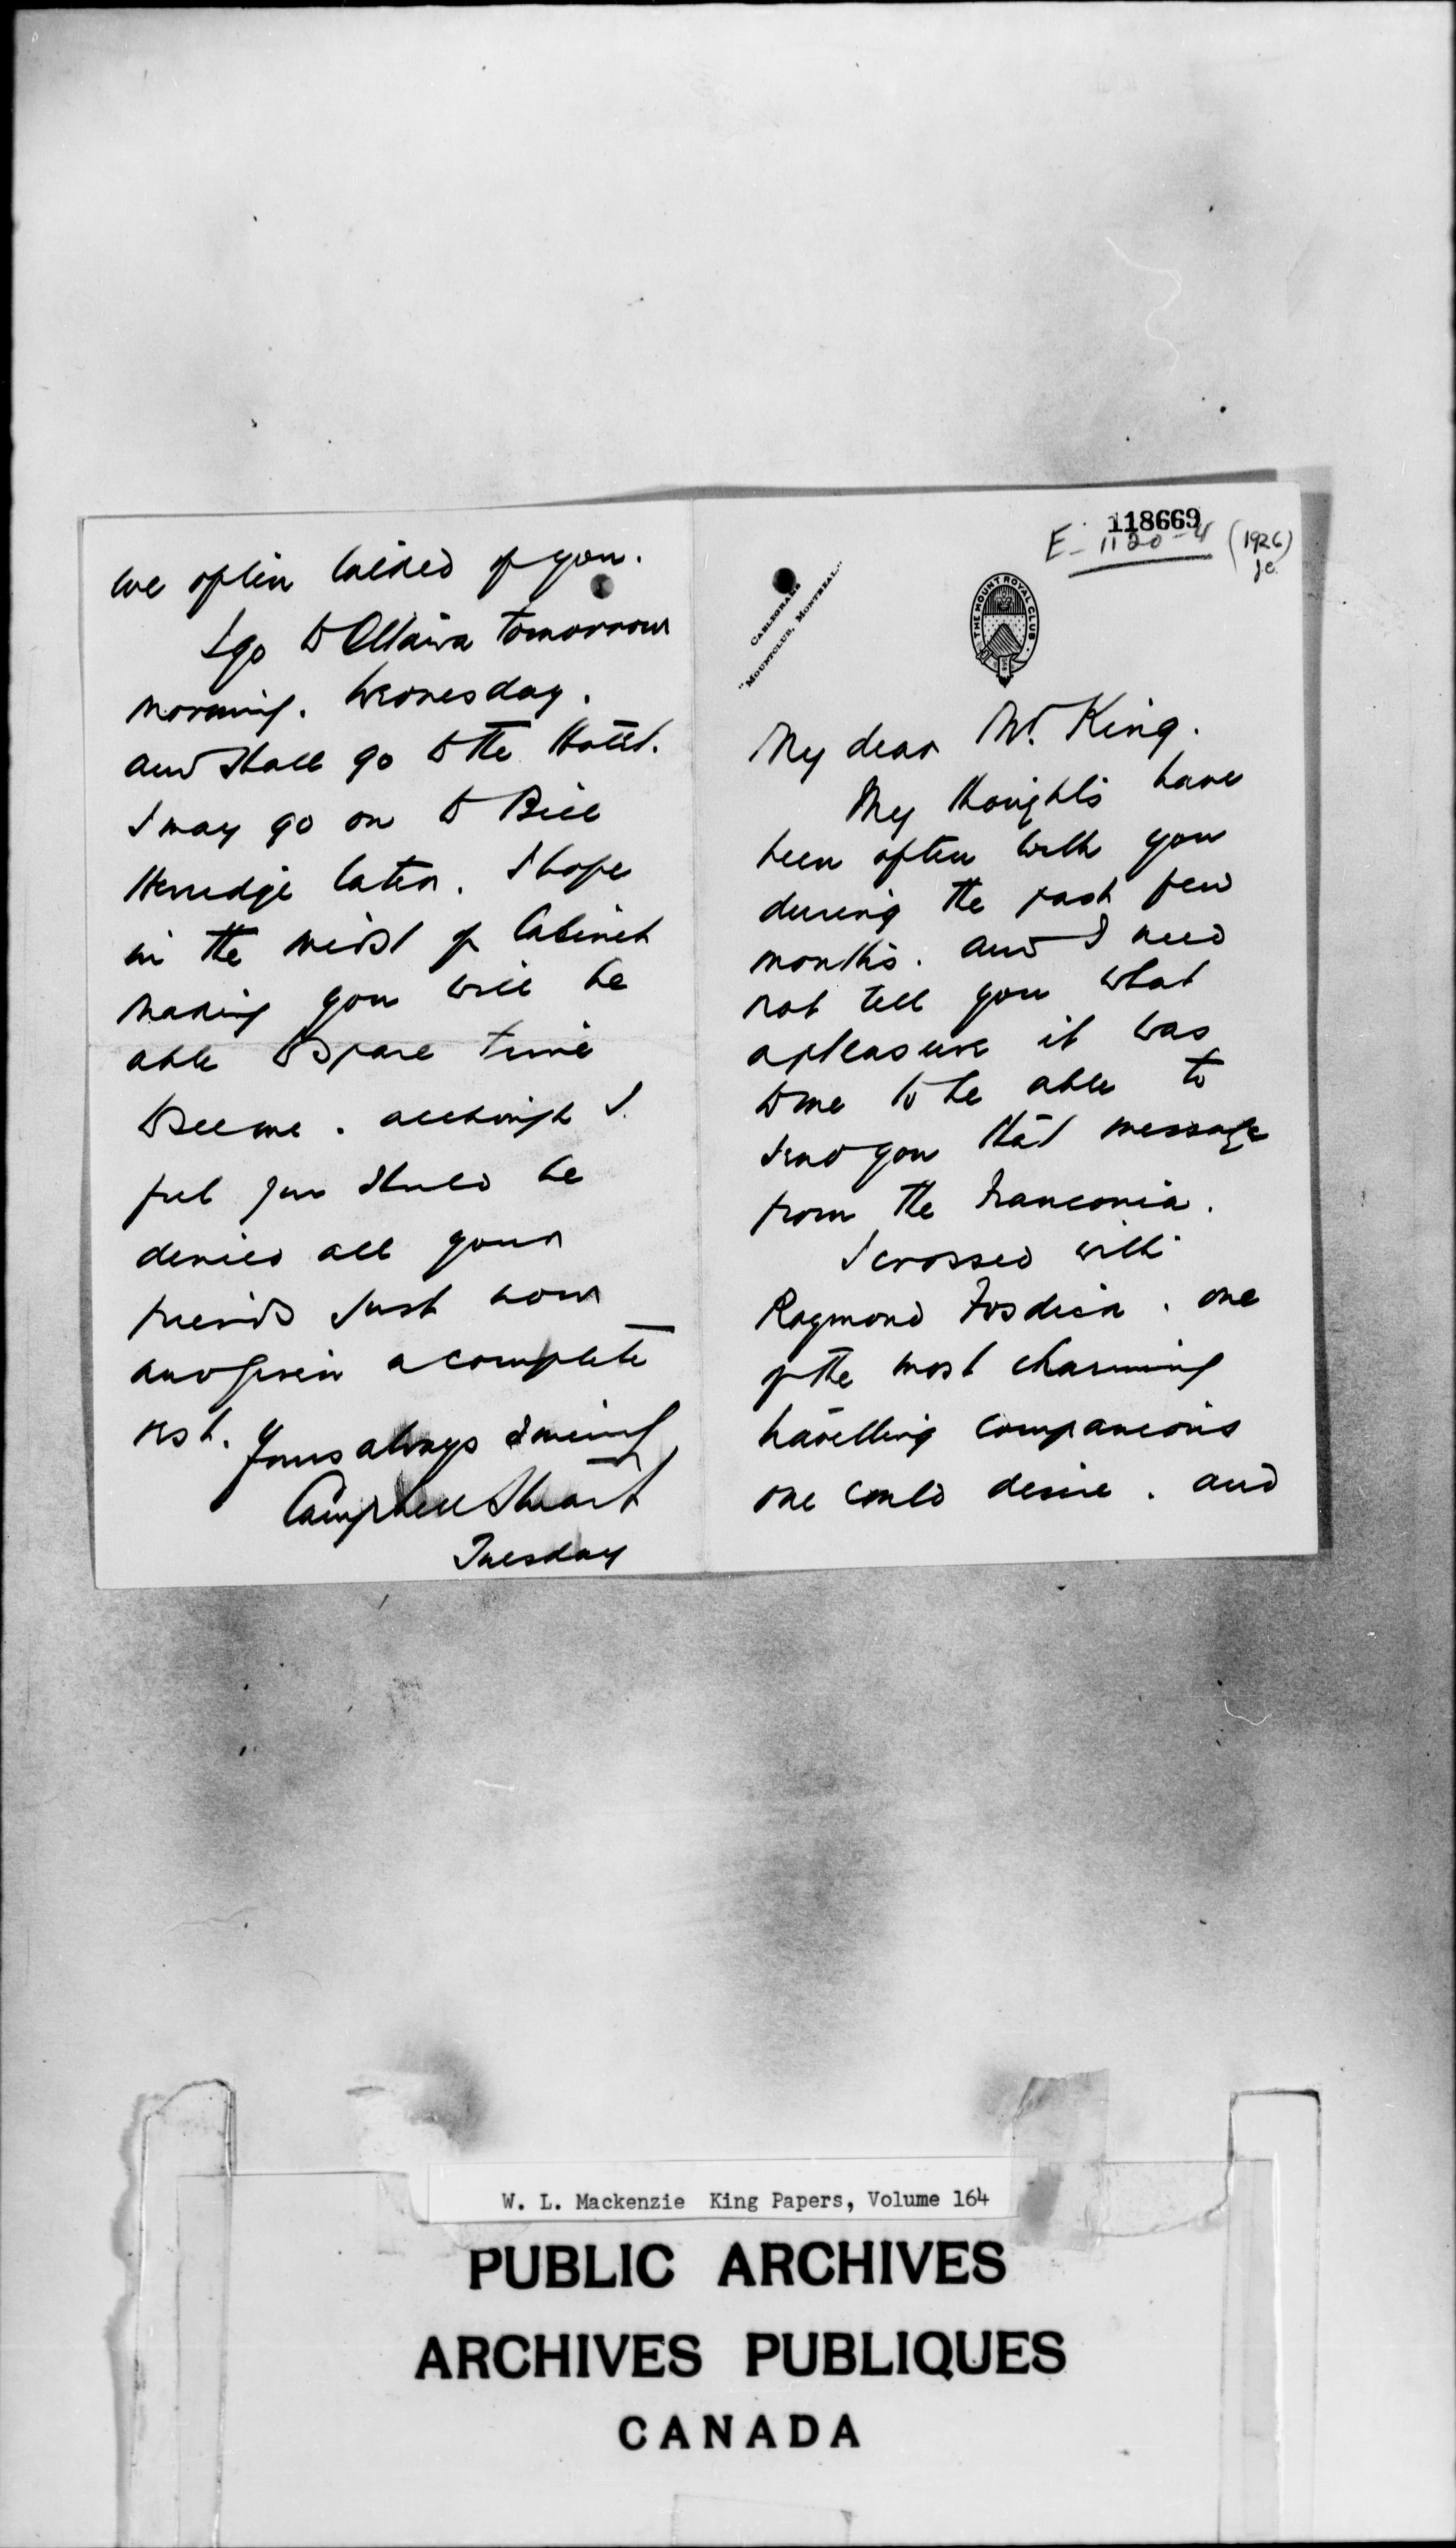 118669
E- 1120-4 (1926)
Je.
CABLEGRAMS
"MOUNTCLUB, MONTREAL."
THE MOUNT ROYAL CLUB
My dear Mr. King.
My thoughts have
been often with you
during the past few
months. and I need
not tell you what
a pleasure it was
to me to be able to
send you that message
from the Franconia.
I crossed with
Raymond Fosdick. one
of the most charming
travelling companions
one could desire. and
we often talked of you.
I go to Ottawa tomorrow
morning. Wednesday.
and shall go to the Hotel.
I may go on to Bill
Herridge later. I hope
in the midst of Cabinet
making you will be
able to spare time
to see me. although I
feel you should be
denied all your
friends just now
and given a complete
rest. Yours always sincerely
Campbell Stuart
Tuesday
W. L. Mackenzie King Papers, Volume 164
PUBLIC ARCHIVES
ARCHIVES PUBLIQUES
CANADA